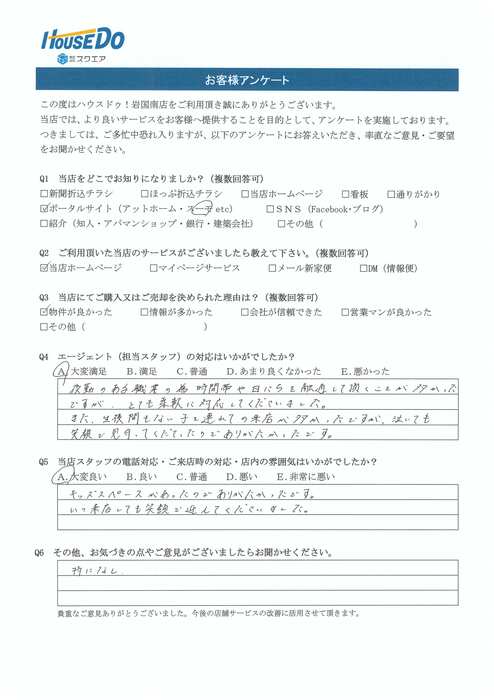 HOUSEDO
株式会社スクエア
お客様アンケート
この度はハウスドゥ！岩国南店をご利用頂き誠にありがとうございます。
当店では、より良いサービスをお客様へ提供することを目的として、アンケートを実施しております。
つきましては、ご多忙中恐れ入りますが、以下のアンケートにお答えいただき、率直なご意見・ご要望
をお聞かせください。
Q1 当店をどこでお知りになりましたか？（複数回答可）
□新聞折込チラシ □ほっぷ折込チラシ □当店ホームページ □看板 □通りがかり
☑ポータルサイト（アットホーム・スーモ etc） □ＳＮＳ（Facebook・ブログ）
□紹介（知人・アパマンショップ・銀行・建築会社） □その他（ ）
Q2 ご利用頂いた当店のサービスがございましたら教えて下さい。（複数回答可）
☑当店ホームページ □マイページサービス □メール新家便 □DM（情報便）
Q3 当店にてご購入又はご売却を決められた理由は？（複数回答可）
☑物件が良かった □情報が多かった □会社が信頼できた □営業マンが良かった
□その他（ ）
Q4 エージェント（担当スタッフ）の対応はいかがでしたか？
A.大変満足 B.満足 C.普通 D.あまり良くなかった E.悪かった
夜勤のある職業の為 時間帯や日にちを融通して頂くことが多かった
ですが、とても柔軟に対応してくださいました。
また、生後間もない子を連れての来店が多かったですが、泣いても
笑顔で見守ってくださったのでありがたかったです。
Q5 当店スタッフの電話対応・ご来店時の対応・店内の雰囲気はいかがでしたか？
A.大変良い B.良い C.普通 D.悪い E.非常に悪い
キッズスペースがあったのでありがたかったです。
いつ来店しても笑顔で迎えてくださいました。
Q6 その他、お気づきの点やご意見がございましたらお聞かせください。
特になし
貴重なご意見ありがとうございました。今後の店舗サービスの改善に活用させて頂きます。